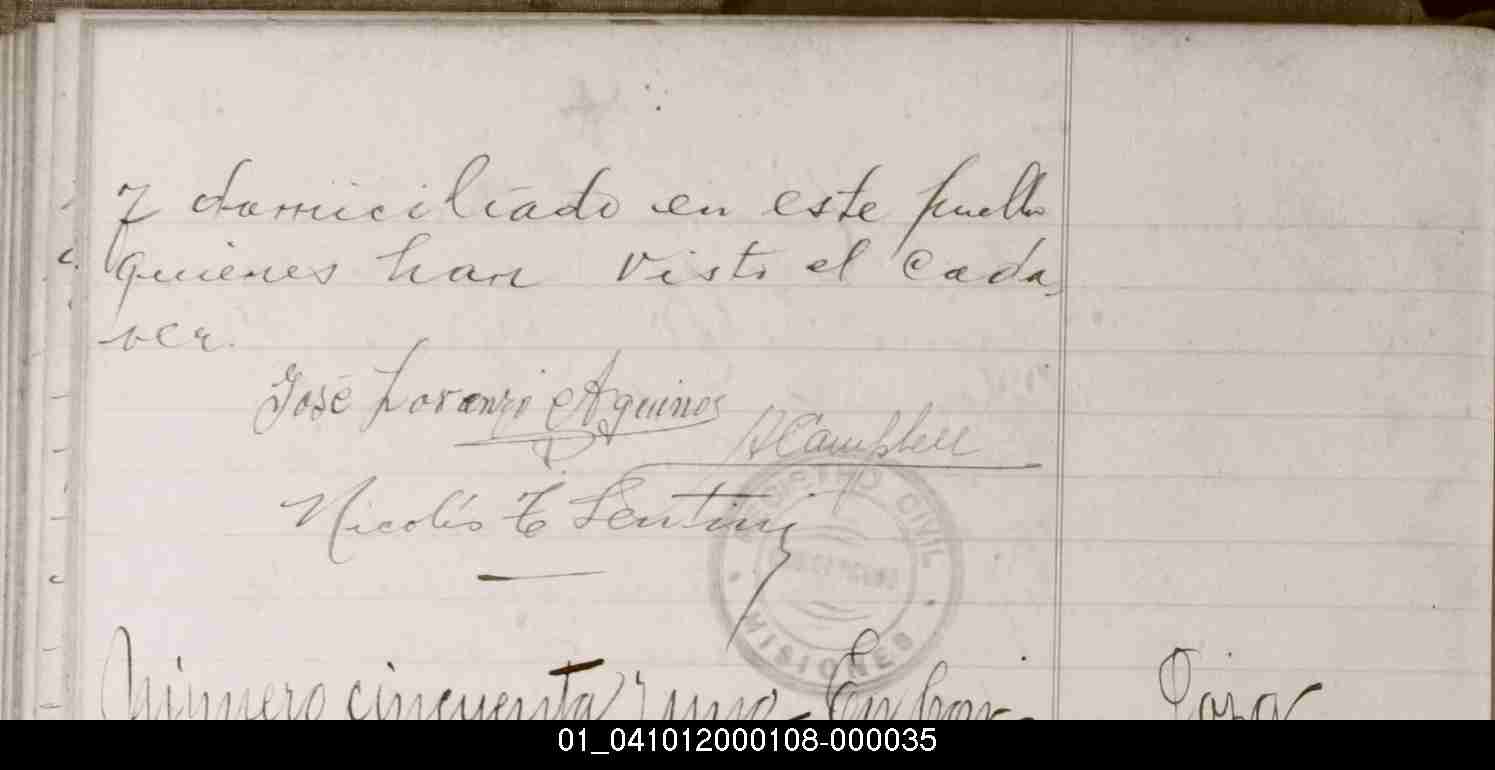 y domiciliado en este pueblo
quienes han visto el cada-
ver.
José Lorenzo Aquinos
A Campbell
Nicolás T. Sentini
REGISTRO CIVIL
MISIONES
Número cincuenta y uno - En Cor-
01_041012000108-000035